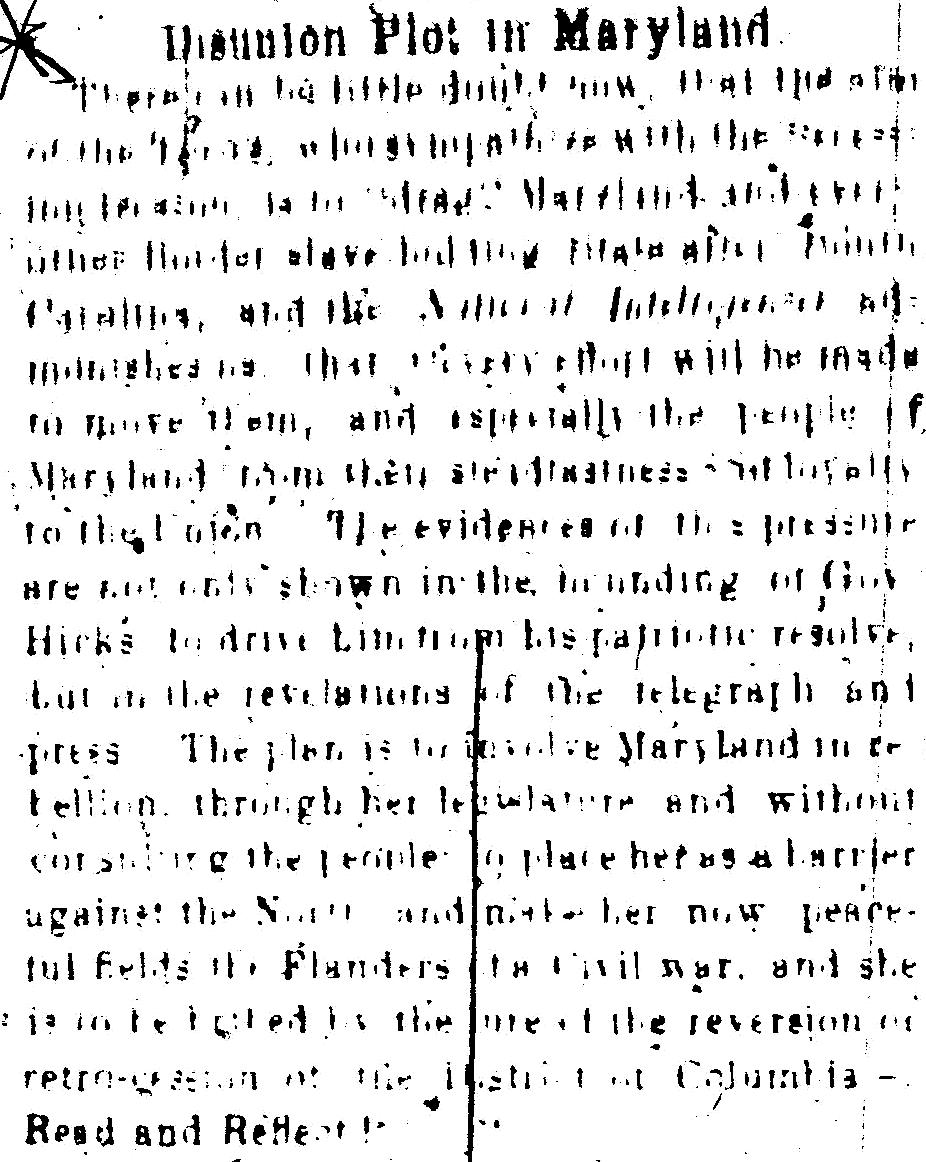 Disunion Plot in Maryland.
There can be little doubt now, that the plan
of the Tories, who sympathise with the
is to "drag" Maryland and every
other Border slave holding State after South
Carolina, and the National Intelligencer ad-
monishes us, that "every effort will be made
to move them, and especially the people of
Maryland from their steadfastness and loyalty
to the Union" The evidences of this pressure
are not only shown in the hounding of Gov
Hicks to drive him from his patriotic resolve,
but in the revelations of the telegraph and
press The plan is to involve Maryland in re-
bellion, through her legislature and without
consulting the people to place her as a barrier
against the North and make her now peace-
ful fields the Flanders of a Civil war, and she
is to be by the lure of the reversion or
retro-cession of the District of Columbia —
Read and Reflect!